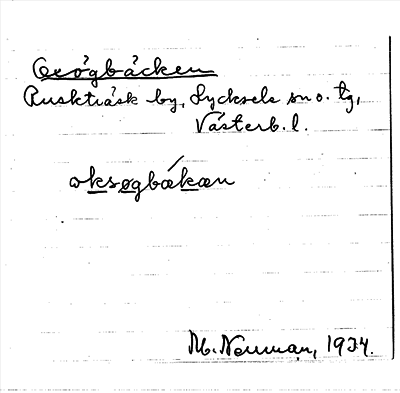 Oxögbäcken
Ruskträsk by, Lycksele sn o. tg,
Västerb. l.
oksøgbækæn
M. Neuman, 1934.